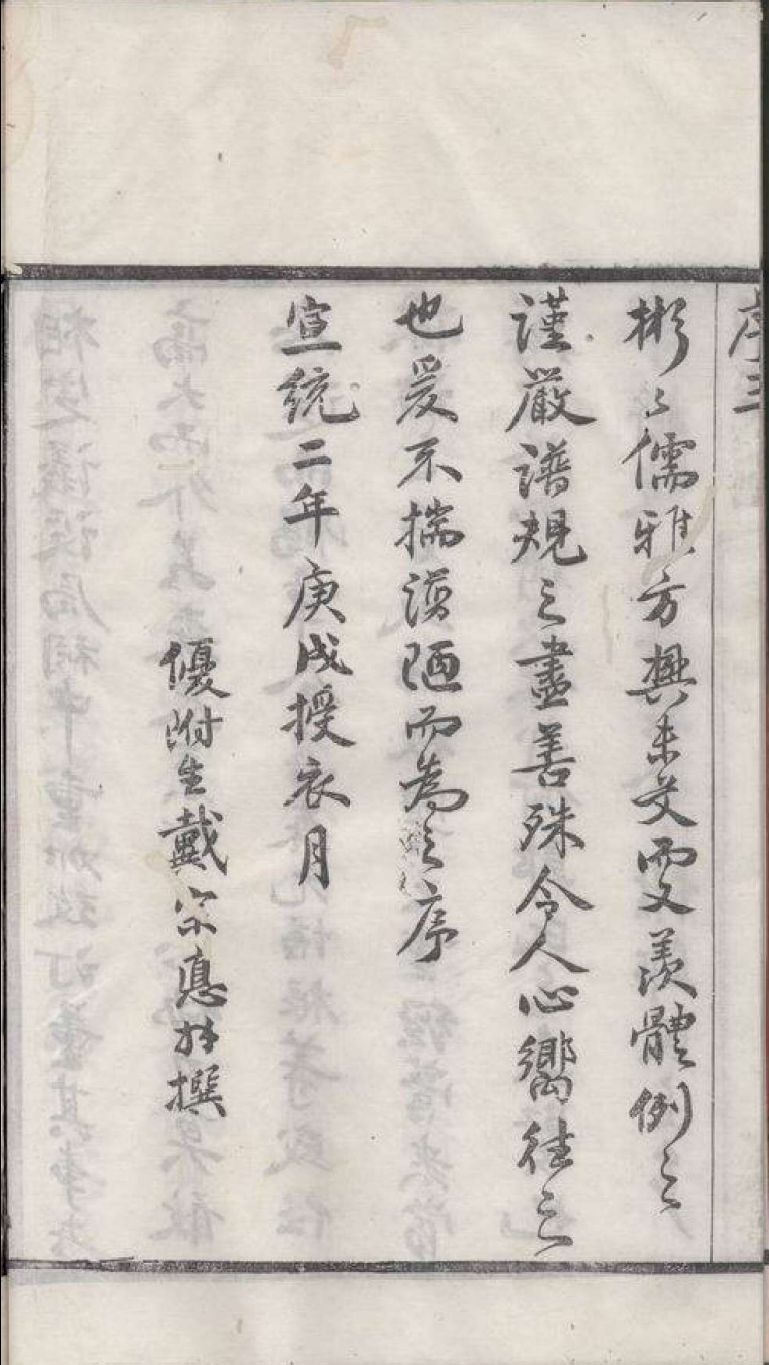 序三
彬〻儒雅方興未艾而又羨體例之
謹嚴譜規之盡善殊令人心嚮往之
也爰不揣譾陋而為之序
宣統二年庚戌授衣月
優附生戴宗憙拜撰